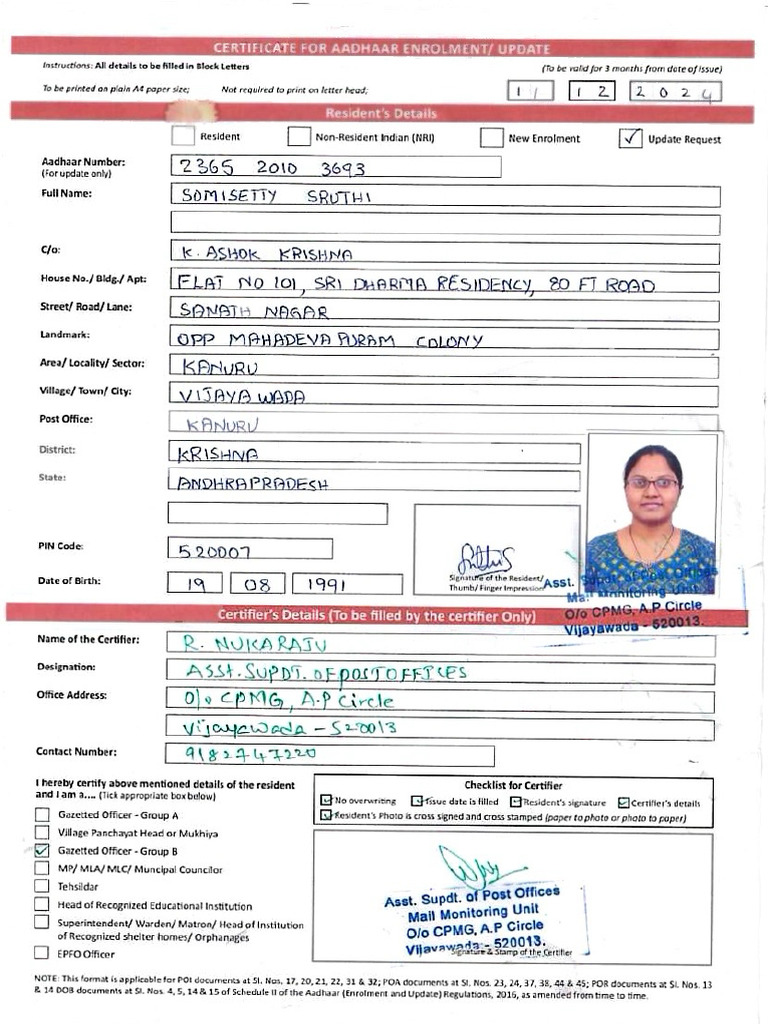 CERTIFICATE FOR AADHAAR ENROLMENT/ UPDATE
Instructions: All details to be filled in Block Letters
(To be valid for 3 months from date of issue)
To be printed on plain A4 paper size; Not required to print on letter head;
11 12 2024
Resident's Details
Resident Non-Resident Indian (NRI) New Enrolment Update Request
Aadhaar Number: 2365 2010 3693
(For update only)
Full Name: SOMISETTY SRUTHI
C/o: K. ASHOK KRISHNA
House No./ Bldg./ Apt: FLAT NO 101, SRI DHARMA RESIDENCY, 80 FT ROAD
Street/ Road/ Lane: SANATH NAGAR
Landmark: OPP MAHADEVA PURAM COLONY
Area/ Locality/ Sector: KANURU
Village/ Town/ City: VIJAYA WADA
Post Office: KANURU
District: KRISHNA
State: ANDHRAPRADESH
PIN Code: 520007
Signature of the Resident/
Thumb/ Finger Impression
Date of Birth: 19 08 1991
Asst. Supdt. of Post Offices
Mail Monitoring Unit
O/o CPMG, A.P Circle
Vijayawada - 520013.
Certifier's Details (To be filled by the certifier Only)
Name of the Certifier: R. NUKARAJU
Designation: ASST. SUPDT. OF POST OFFICES
Office Address: O/o CPMG, A.P Circle
Vijayawada - 520013
Contact Number: 9182747220
I hereby certify above mentioned details of the resident
and I am a.... (Tick appropriate box below)
Gazetted Officer - Group A
Village Panchayat Head or Mukhiya
Gazetted Officer - Group B
MP/ MLA/ MLC/ Muncipal Councilor
Tehsildar
Head of Recognized Educational Institution
Superintendent/ Warden/ Matron/ Head of Institution
of Recognized shelter homes/ Orphanages
EPFO Officer
Checklist for Certifier
No overwriting Issue date is filled Resident's signature Certifier's details
Resident's Photo is cross signed and cross stamped (paper to photo or photo to paper)
Asst. Supdt. of Post Offices
Mail Monitoring Unit
O/o CPMG, A.P Circle
Vijayawada - 520013.
Signature & Stamp of the Certifier
NOTE: This format is applicable for POI documents at Sl. Nos. 17, 20, 21, 22, 31 & 32; POA documents at Sl. Nos. 23, 24, 37, 38, 44 & 45; POR documents at Sl. Nos. 13
& 14 DOB documents at Sl. Nos. 4, 5, 14 & 15 of Schedule II of the Aadhaar (Enrolment and Update) Regulations, 2016, as amended from time to time.